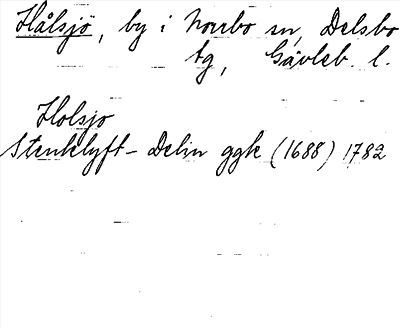 Hålsjö, by i Norrbo sn, Delsbo
tg, Gävleb. l.
Holsjo
Stenklyft - Delin ggk (1688) 1782